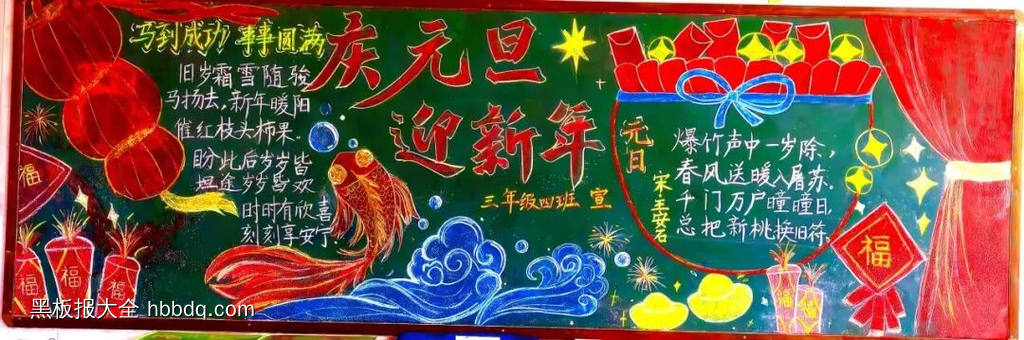 马到成功 事事圆满
旧岁霜雪随骏
马扬去,新年暖阳
催红枝头柿果。
盼此后岁岁皆
坦途岁岁马欢
时时有欣喜
刻刻享安宁。
庆元旦
迎新年
三年级四班 宣
元日
宋 王安石
爆竹声中一岁除,
春风送暖入屠苏.
千门万户曈曈日,
总把新桃换旧符.
福
福
福
福
福
福
福
黑板报大全 hbbdq.com